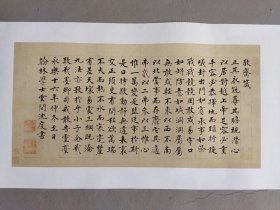 敬齋箴
正其衣冠尊其瞻視潛心
以居對越上帝足容必重
手容必恭擇地而蹈折旋
蟻封出門如賓承事如祭
戰戰兢兢罔敢或易守口
如瓶防意如城洞洞屬屬
罔敢或輕不東以西不南
以北當事而存靡他其適
弗貳以二弗參以三惟心
惟一萬變是監從事於斯
是曰持敬動靜弗違表裏
交正須臾有間私欲萬端
不火而熱不冰而寒毫釐
有差天壤易處三綱既淪
九法亦斁於乎小子念哉
敬哉墨卿司戒敢告靈臺
永樂十六年仲冬至日
翰林學士雲間沈度書